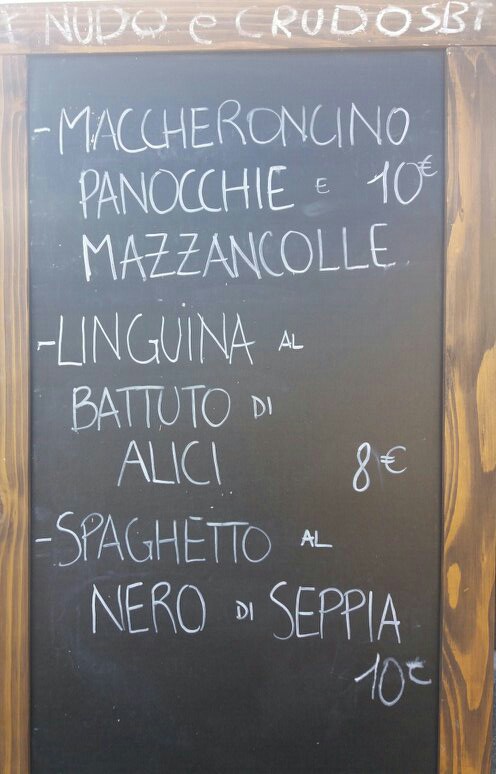 NUDO e CRUDO SBT
-MACCHERONCINO
PANOCCHIE E 10€
MAZZANCOLLE
-LINGUINA AL
BATTUTO DI
ALICI 8€
-SPAGHETTO AL
NERO DI SEPPIA
10€